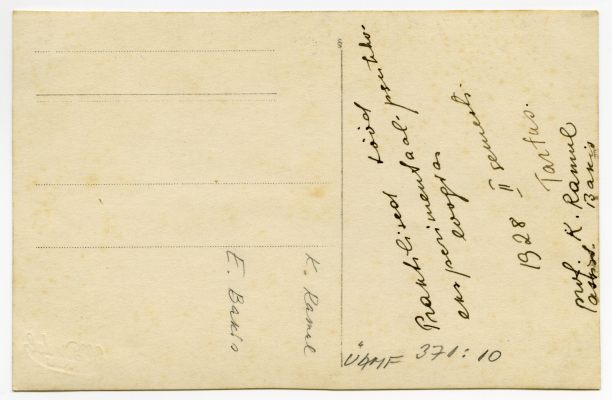 Praktilised tööd
eksperimentaal-psühho-
loogias
1928 II semestr.
Tartus.
prof. K. Ramul
assist. Bakis
K. Ramul
E. Bakis
ÜAMF 371:10